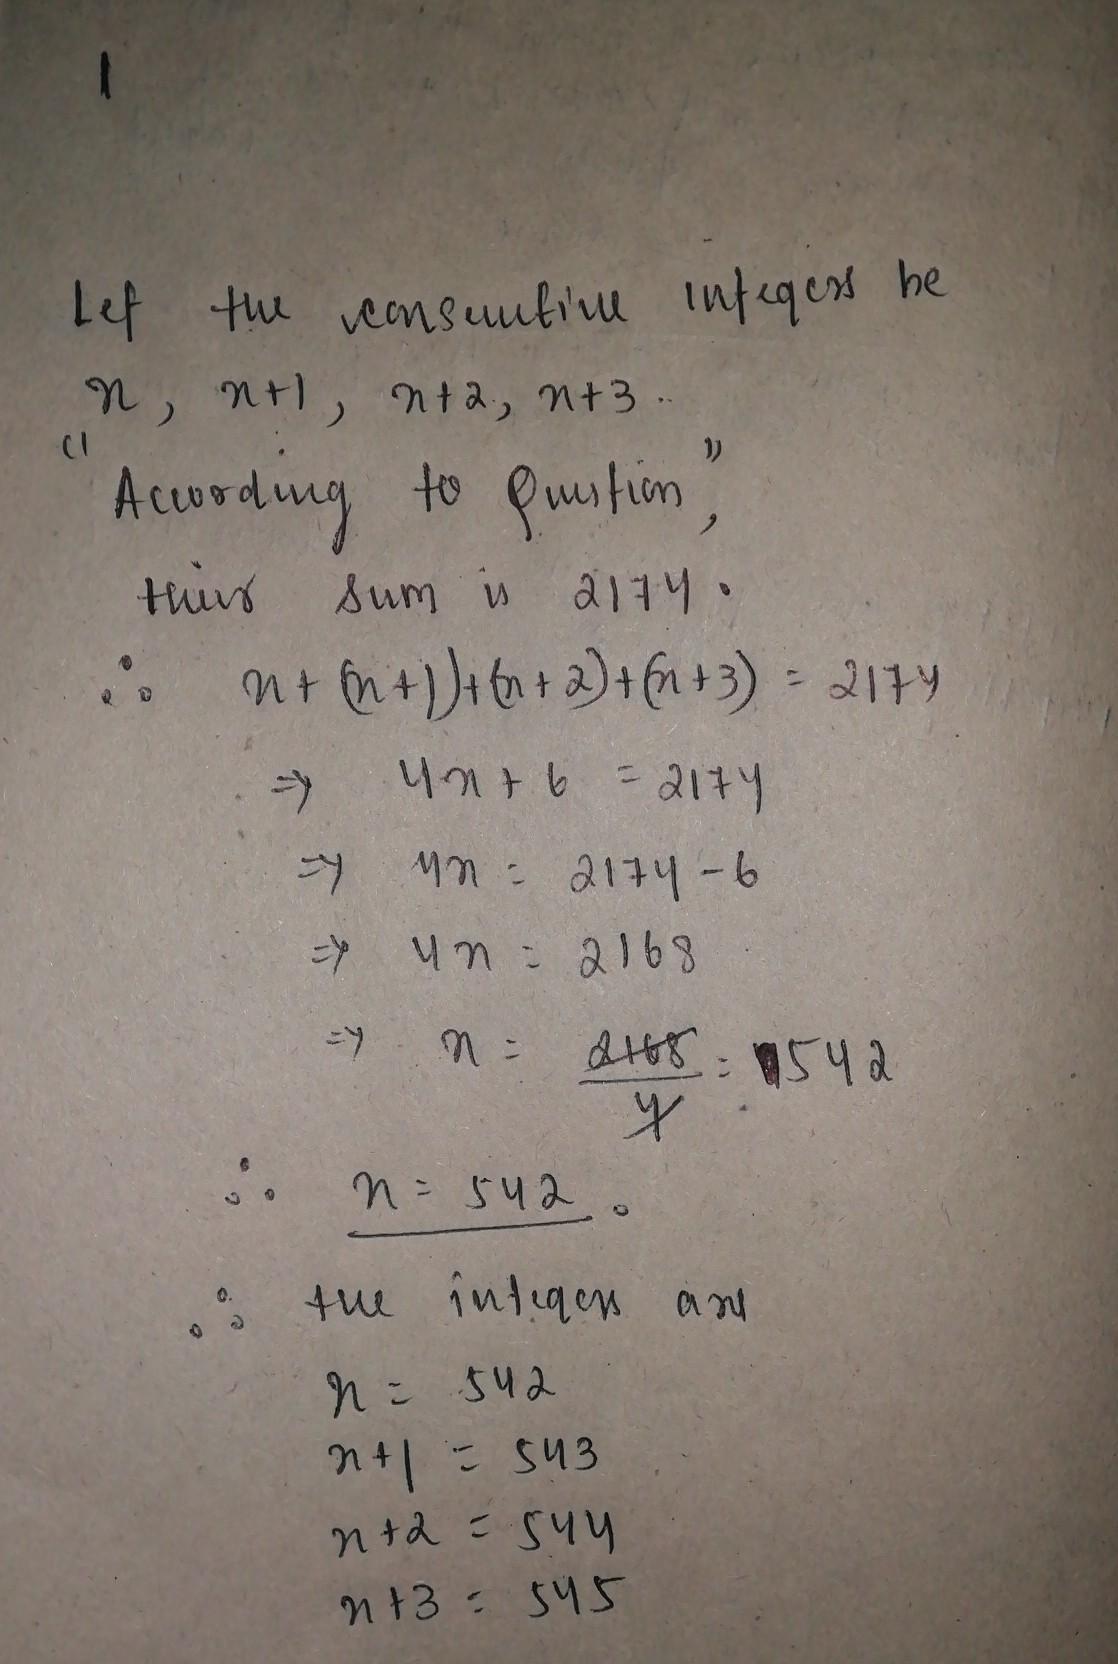 1
Let the consecutive integers be
n, n+1, n+2, n+3.
"According to Question",
their sum is 2174.
∴ n+(n+1)+(n+2)+(n+3) = 2174
⇒ 4n+6 = 2174
⇒ 4n = 2174-6
⇒ 4n = 2168
⇒ n = 2168/4 = 542
∴ n = 542.
∴ the integers are
n = 542
n+1 = 543
n+2 = 544
n+3 = 545